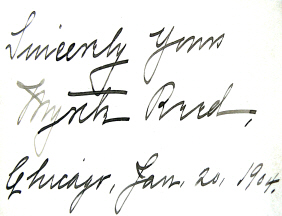 Sincerely Yours
Myrtle Reed,
Chicago, Jan. 20, 1904.